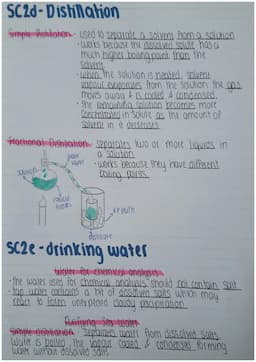 SC2d - Distillation
Simple distillation - used to separate a solvent from a solution
- works because the dissolved solute has a
much higher boiling point than the
solvent.
- when the solution is heated, solvent
vapour evaporates from the solution the gas
moves away & is cooled & condensed.
- the remaining solution becomes more
concentrated in solute as the amount of
solvent in it decreases.
Fractional Distillation - separates two or more liquids in
a solution
- works because they have different
boiling points.
water
vapour
solution
beaker
distillate
SC2e - drinking water
Water for chemical analysis
- the water used for chemical analysis should not contain salt
- tap water contains a bit of dissolved salts which may
react to form unexpected cloudy precipitation.
Purifying sea water
Simple distillation - Separates water from dissolved salts
Water is boiled, the vapour cooled & condensed forming
water without dissolved salts